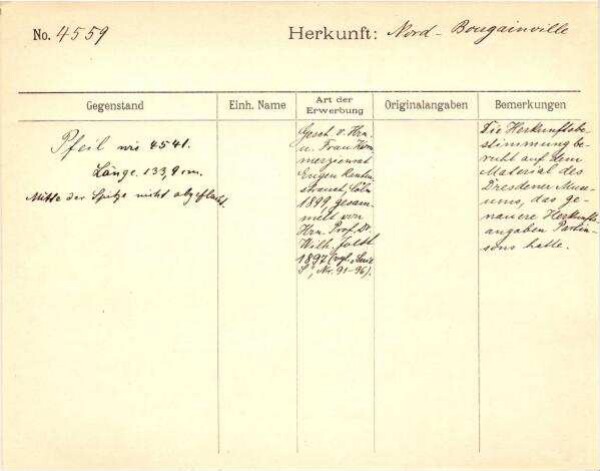 No. 4559
Herkunft: Nord-Bougainville
Gegenstand
Einh. Name
Art der Erwerbung
Originalangaben
Bemerkungen
Pfeil wie 4541.
Länge 133,9 cm.
Mitte der Spitze nicht abgeflacht.
Gesch. v. Hrn.
u. Frau Kom
merzienrat
Eugen
Cöln
1899, gesam
melt von
Hrn. Prof. Dr.
Wilh. Joest
1897 (vgl.
Nr. 91-96).
Die Herkunftsbe-
stimmung be-
ruht auf dem
Material des
Dresdener Muse-
ums, das ge-
nauere Herkunfts-
angaben Parkin-
sons hatte.